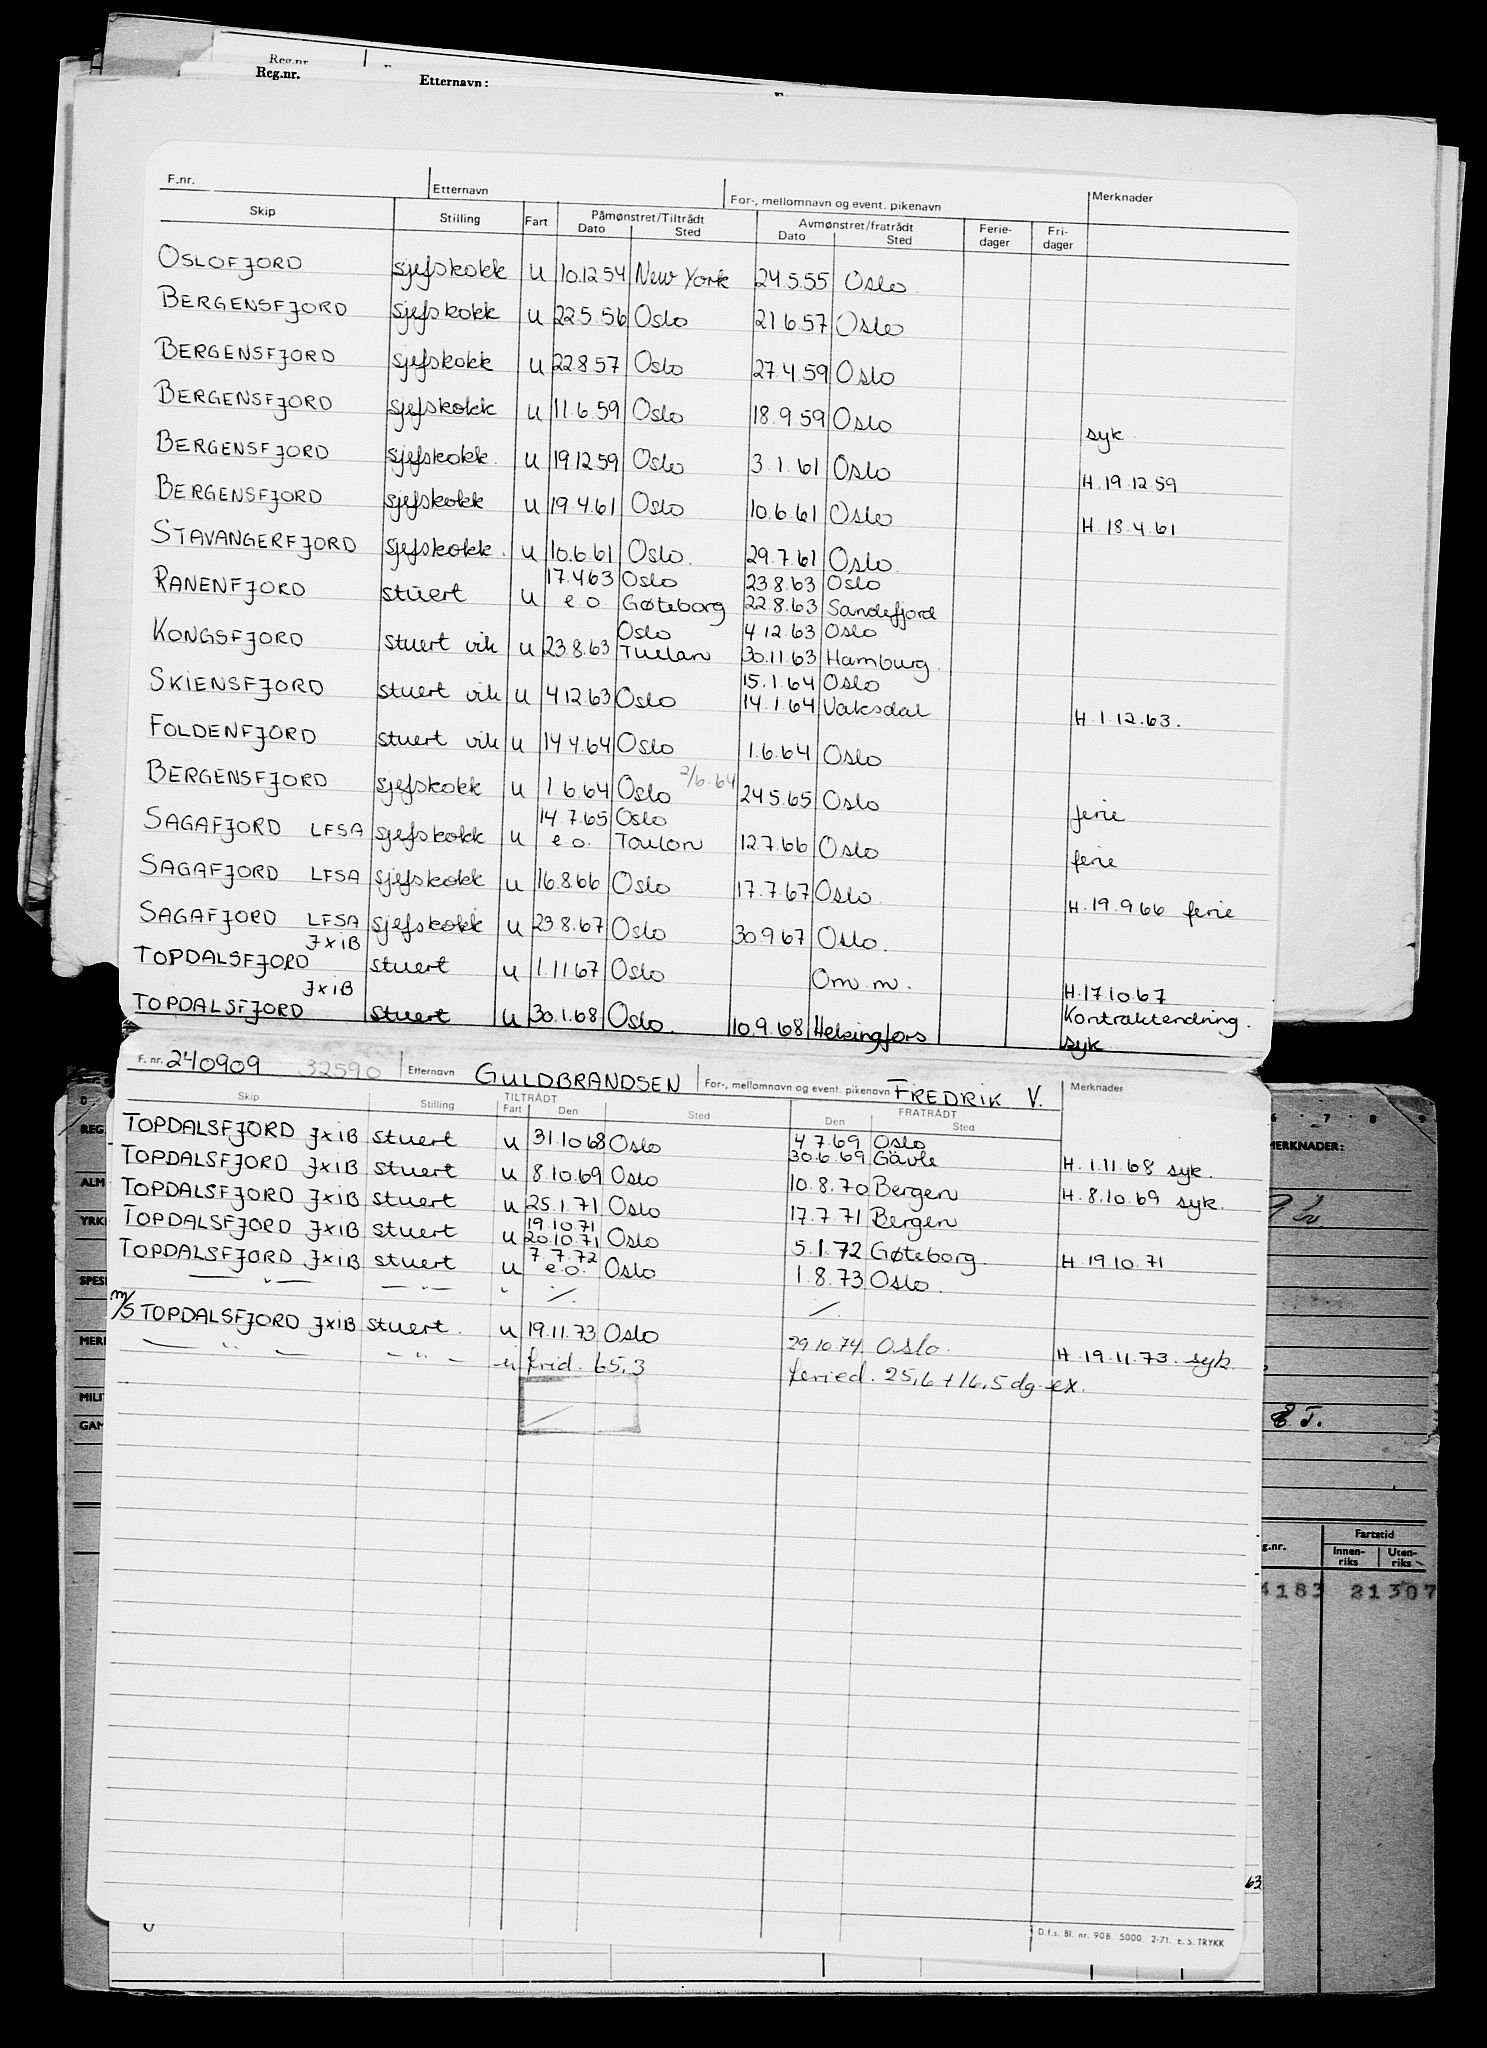 Reg.nr.
Reg.nr. Etternavn:
F.nr. Etternavn For-, mellomnavn og event. pikenavn Merknader
Skip Stilling Fart Påmønstret/Tiltrådt Avmønstret/fratrådt Ferie-dager Fri-dager
Dato Sted Dato Sted
OSLOFJORD sjefskokk u 10.12.54 New York 24.5.55 Oslo.
BERGENSFJORD sjefskokk u 22.5.56 Oslo 21.6.57 Oslo
BERGENSFJORD sjefskokk u 22.8.57 Oslo 27.4.59 Oslo
BERGENSFJORD sjefskokk u 11.6.59 Oslo 18.9.59 Oslo syk.
BERGENSFJORD sjefskokk. u 19.12.59 Oslo 3.1.61 Oslo H.19.12.59
BERGENSFJORD sjefskokk u 19.4.61 Oslo 10.6.61 Oslo H.18.4.61
STAVANGERFJORD sjefskokk. u 10.6.61 Oslo. 29.7.61 Oslo.
17.4.63 Oslo 23.8.63 Oslo
RANENFJORD stuert u e.o. Gøteborg 22.8.63 Sandefjord
Oslo 4.12.63 Oslo
KONGSFJORD stuert vik u 23.8.63 Tuelan 30.11.63 Hamburg.
15.1.64 Oslo
SKIENSFJORD stuert vik u 4.12.63 Oslo 14.1.64 Vaksdal H.1.12.63.
FOLDENFJORD stuert vik u 14.4.64 Oslo 1.6.64 Oslo
BERGENSFJORD sjefskokk u 1.6.64 Oslo 2/6.64 24.5.65 Oslo ferie
14.7.65 Oslo
SAGAFJORD LFSA sjefskokk u e.o. Toulon 12.7.66 Oslo ferie
SAGAFJORD LFSA sjefskokk u 16.8.66 Oslo 17.7.67 Oslo. H.19.9.66 ferie
SAGAFJORD LFSA sjefskokk u 23.8.67 Oslo 30.9.67 Oslo.
JXIB
TOPDALSFJORD stuert u 1.11.67 Oslo Om.m. H.17.10.67
JXIB Kontraktendring.
TOPDALSFJORD stuert u 30.1.68 Oslo. 10.9.68 Helsingfors syk
F. nr. 240909 32590 Etternavn GULDBRANDSEN For-, mellomnavn og event. pikenavn FREDRIK V. Merknader
Skip Stilling TILTRÅDT FRATRÅDT
Fart Den Sted Den Sted
TOPDALSFJORD JXIB stuert u 31.10.68 Oslo 4.7.69 Oslo
30.6.69 Gävle H.1.11.68 syk.
TOPDALSFJORD JXIB stuert u 8.10.69 Oslo 10.8.70 Bergen H.8.10.69 syk.
TOPDALSFJORD JXIB stuert u 25.1.71 Oslo 17.7.71 Bergen
19.10.71
TOPDALSFJORD JXIB stuert u 20.10.71 Oslo 5.1.72 Gøteborg. H.19.10.71
7.7.72
TOPDALSFJORD JXIB stuert u e.o. Oslo 1.8.73 Oslo.
— " — — " — " /. /.
m/s TOPDALSFJORD JXIB stuert. u 19.11.73 Oslo 29.10.74 Oslo. H.19.11.73. syk.
— " — — " — u frid. 65,3 feried. 25,6 + 16,5 dg. ex.
D.f.s. Bl. nr. 90B. 5000. 2-71. E.S. TRYKK
0 6 7 8 9
REG. MERKNADER:
ALM
YRK
SPES
MER
MILI
GAM E T.
Fartstid
g.nr. Innen-riks Uten-riks
4183 21307
63